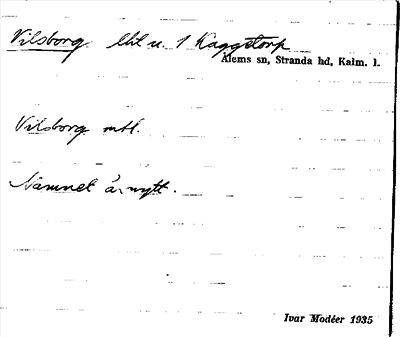 Vilsborg. lht u. 1 Kaggetorp
Ålems sn, Stranda hd, Kalm. l.
Vilsborg mtl.
Namnet är nytt.
Ivar Modéer 1935